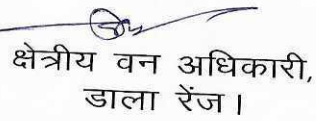 क्षेत्रीय वन अधिकारी,
डाला रेंज।